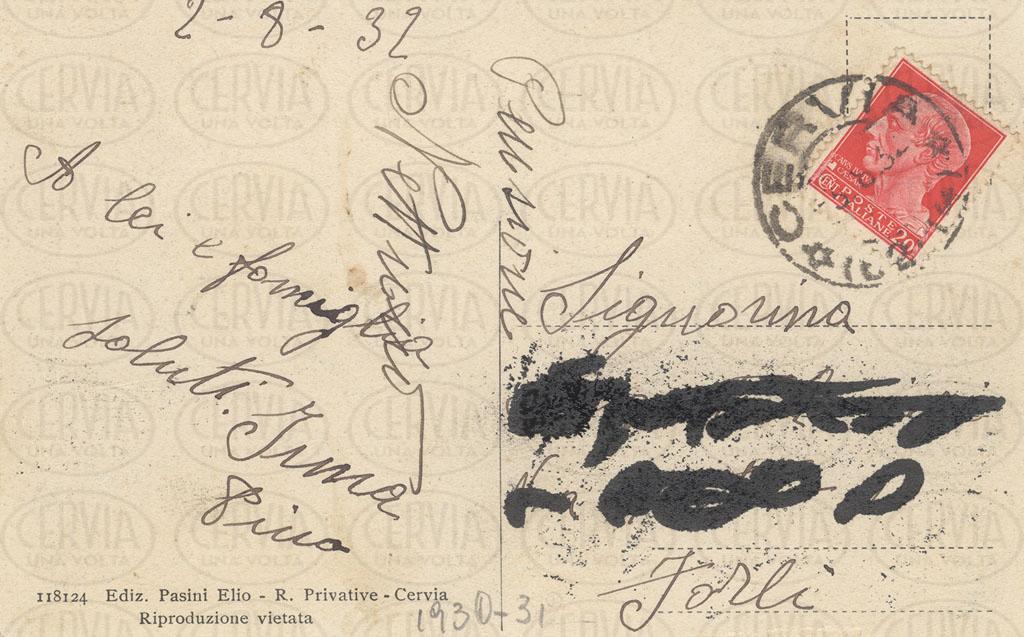 2-8-32
A lei e famiglia
saluti. Irma
Pino
Pensione
Signorina
Forlì
CERVIA
POSTE
ITALIANE
CENT 20
118124 Ediz. Pasini Elio - R. Privative - Cervia
Riproduzione vietata
1930-31
CERVIA
UNA VOLTA